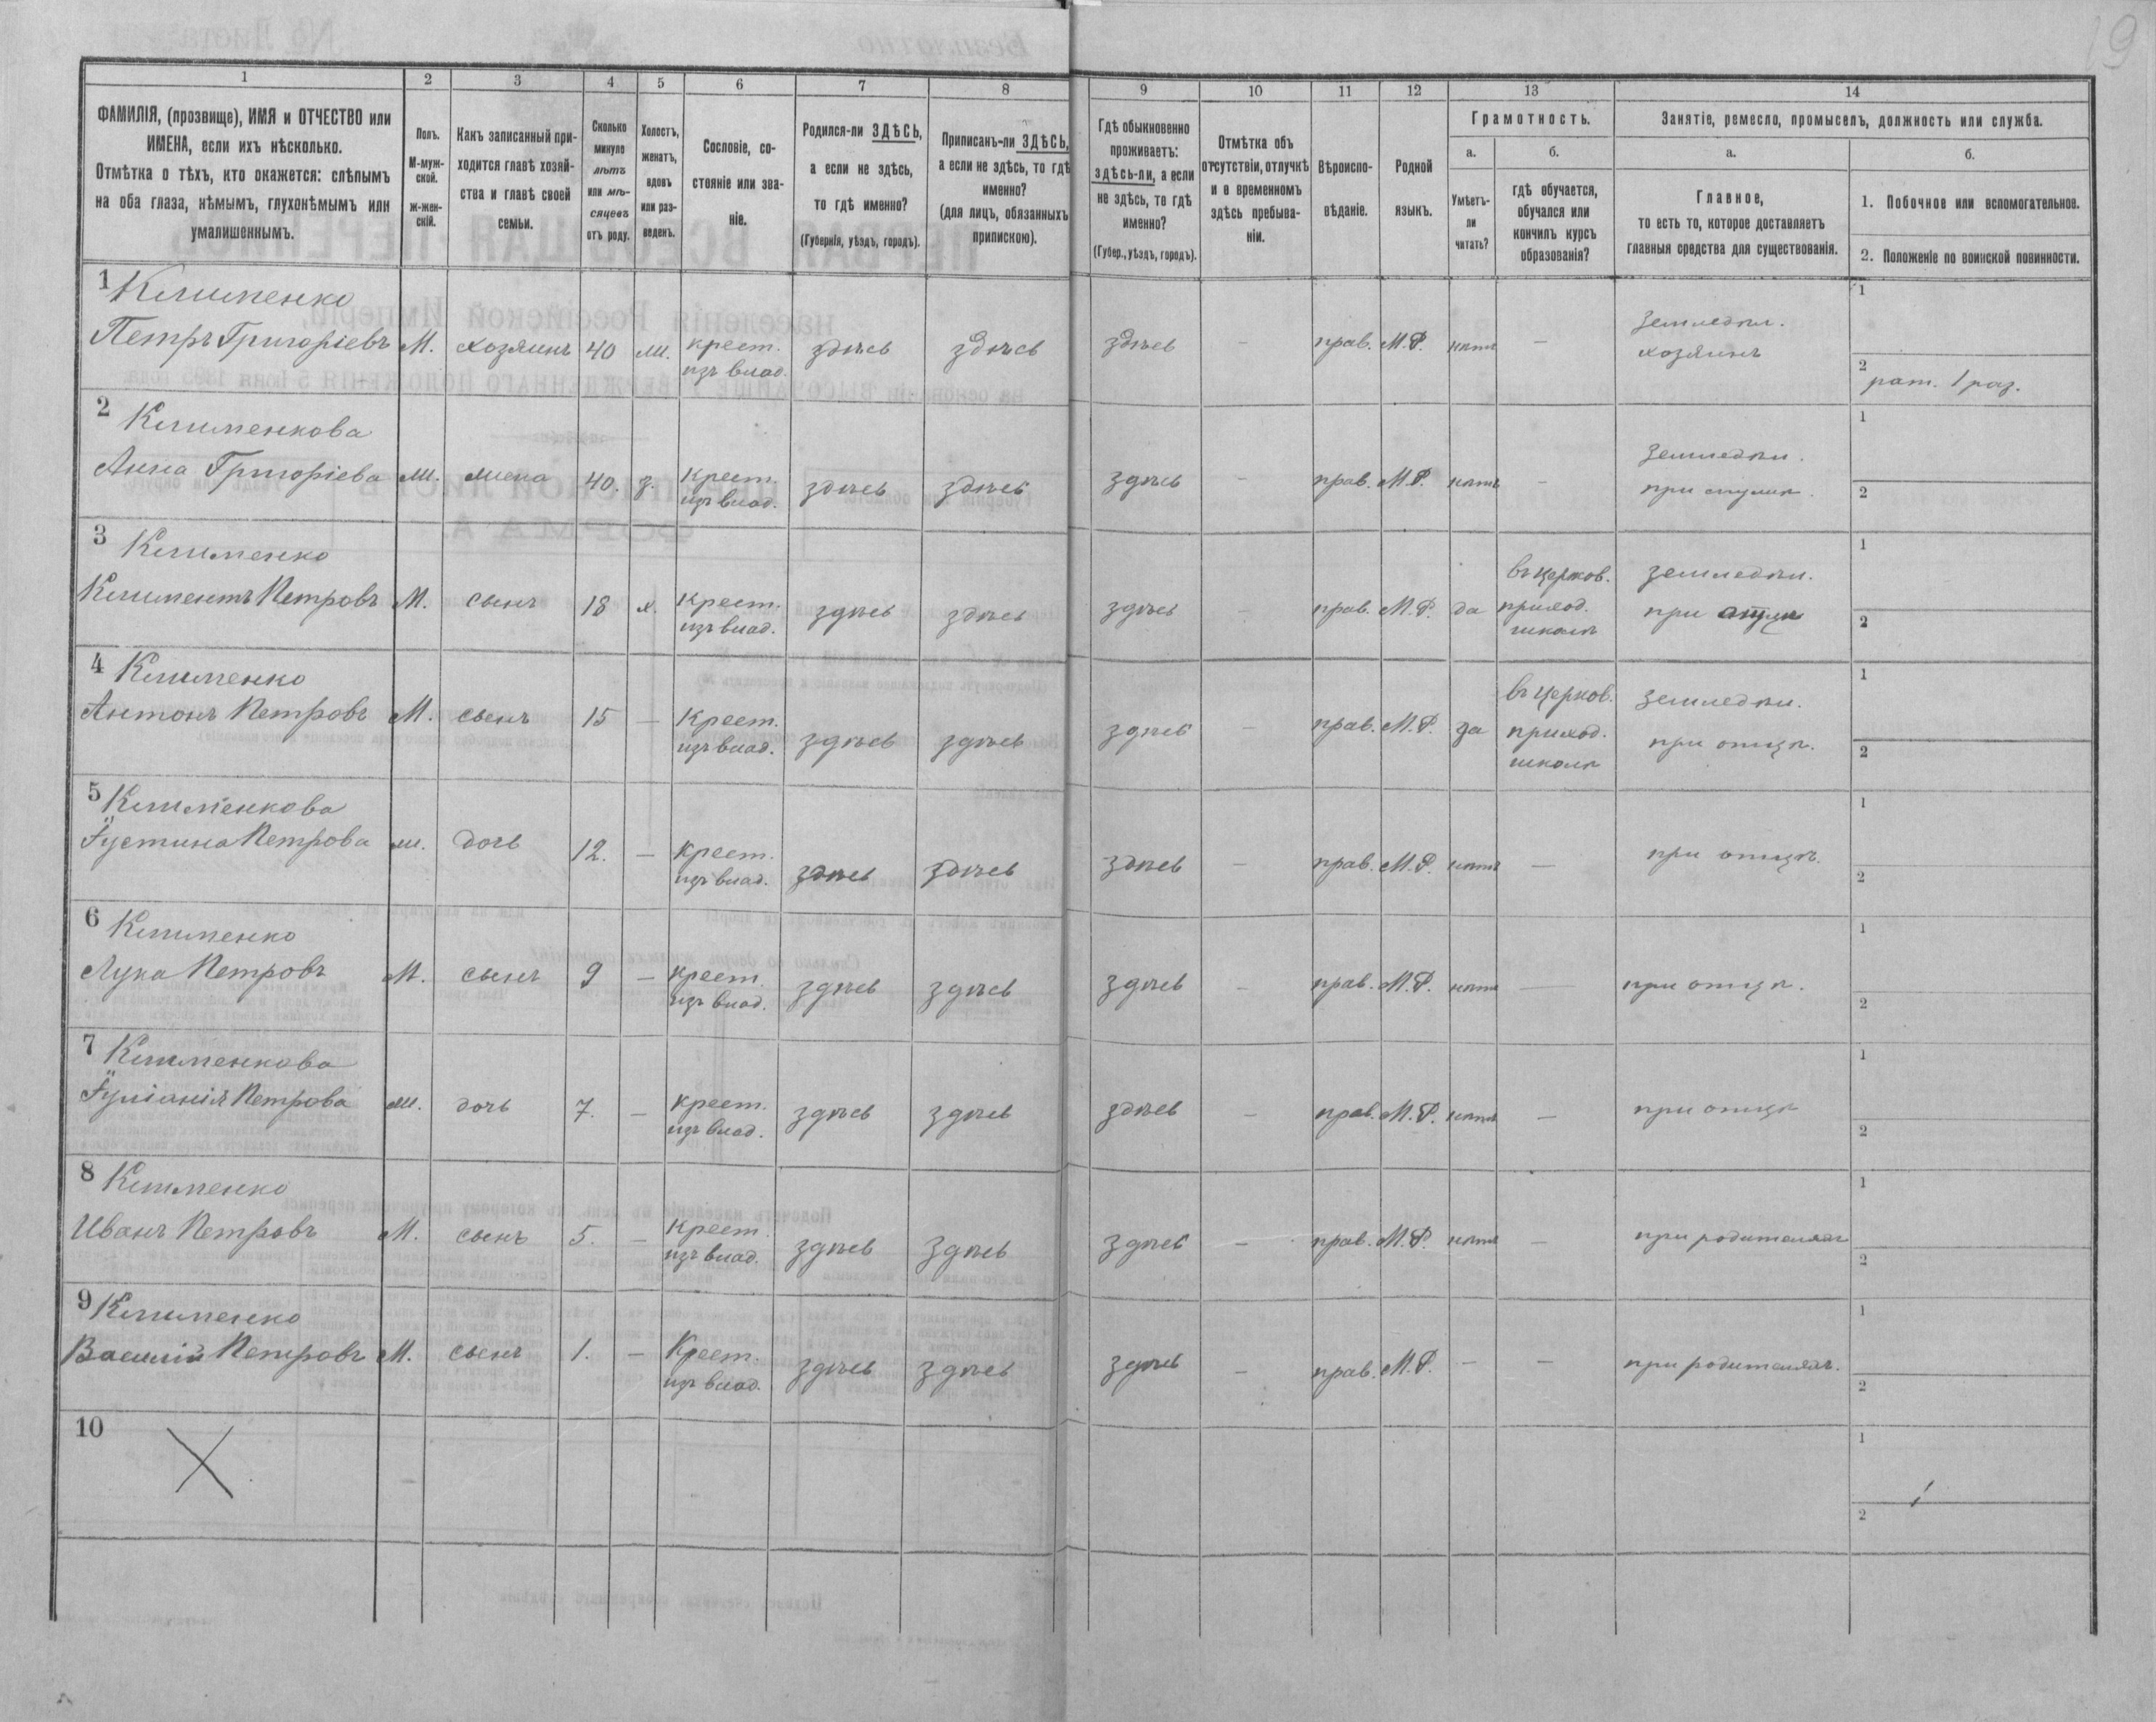 19
1 2 3 4 5 6 7 8 9 10 11 12 13 14
ФАМИЛІЯ, (прозвище), ИМЯ и ОТЧЕСТВО или
ИМЕНА, если ихъ нѣсколько.
Отмѣтка о тѣхъ, кто окажется: слѣпымъ
на оба глаза, нѣмымъ, глухонѣмымъ или
умалишеннымъ.
Полъ.
М-муж-
ской.
ж-жен-
скій.
Какъ записанный при-
ходится главѣ хозяй-
ства и главѣ своей
семьи.
Сколько
минуло
лѣтъ
или мѣ-
сяцевъ
отъ роду.
Холостъ,
женатъ,
вдовъ
или раз-
веденъ.
Сословіе, со-
стояніе или зва-
ніе.
Родился-ли ЗДѢСЬ,
а если не здѣсь,
то гдѣ именно?
(Губернія, уѣздъ, городъ).
Приписанъ-ли ЗДѢСЬ,
а если не здѣсь, то гдѣ
именно?
(для лицъ, обязанныхъ
припискою).
Гдѣ обыкновенно
проживаетъ:
здѣсь-ли, а если
не здѣсь, то гдѣ
именно?
(Губер., уѣздъ, городъ).
Отмѣтка объ
отсутствіи, отлучкѣ
и о временномъ
здѣсь пребыва-
ніи.
Вѣроиспо-
вѣданіе.
Родной
языкъ.
Грамотность.
а.
Умѣетъ-
ли
читать?
б.
гдѣ обучается,
обучался или
кончилъ курсъ
образованія?
Занятіе, ремесло, промыселъ, должность или служба.
а.
Главное,
то есть то, которое доставляетъ
главныя средства для существованія.
б.
1. Побочное или вспомогательное.
2. Положеніе по воинской повинности.
1 Клименко
Петръ Григоріевъ М. хозяинъ 40 ж. крест. здѣсь здѣсь здѣсь - прав. М.Р. нѣтъ - земледѣл.
изъ влад. хозяинъ
1
2 рат. 1 раз.
2 Клименкова
Анна Григоріева ж. жена 40. з. крест. здѣсь здѣсь здѣсь - прав. М.Р. нѣтъ - земледѣл.
изъ влад. при мужѣ.
1
2
3 Клименко
Климентъ Петровъ М. сынъ 18 х. крест. здѣсь здѣсь здѣсь - прав. М.Р. да въ церков. земледѣл.
изъ влад. приход. при отцѣ
школѣ
1
2
4 Клименко
Антонъ Петровъ М. сынъ 15 - крест. здѣсь здѣсь здѣсь - прав. М.Р. да въ церков. земледѣл.
изъ влад. приход. при отцѣ.
школѣ
1
2
5 Клименкова
Іустина Петрова ж. дочь 12. - крест. здѣсь здѣсь здѣсь - прав. М.Р. нѣтъ - при отцѣ.
изъ влад.
1
2
6 Клименко
Лука Петровъ М. сынъ 9 - крест. здѣсь здѣсь здѣсь - прав. М.Р. нѣтъ - при отцѣ.
изъ влад.
1
2
7 Клименкова
Іуліанія Петрова ж. дочь 7. - крест. здѣсь здѣсь здѣсь - прав. М.Р. нѣтъ - при отцѣ
изъ влад.
1
2
8 Клименко
Иванъ Петровъ М. сынъ 5. - крест. здѣсь здѣсь здѣсь - прав. М.Р. нѣтъ - при родителяхъ
изъ влад.
1
2
9 Клименко
Василій Петровъ М. сынъ 1. - крест. здѣсь здѣсь здѣсь - прав. М.Р. - - при родителяхъ.
изъ влад.
1
2
10
1
2